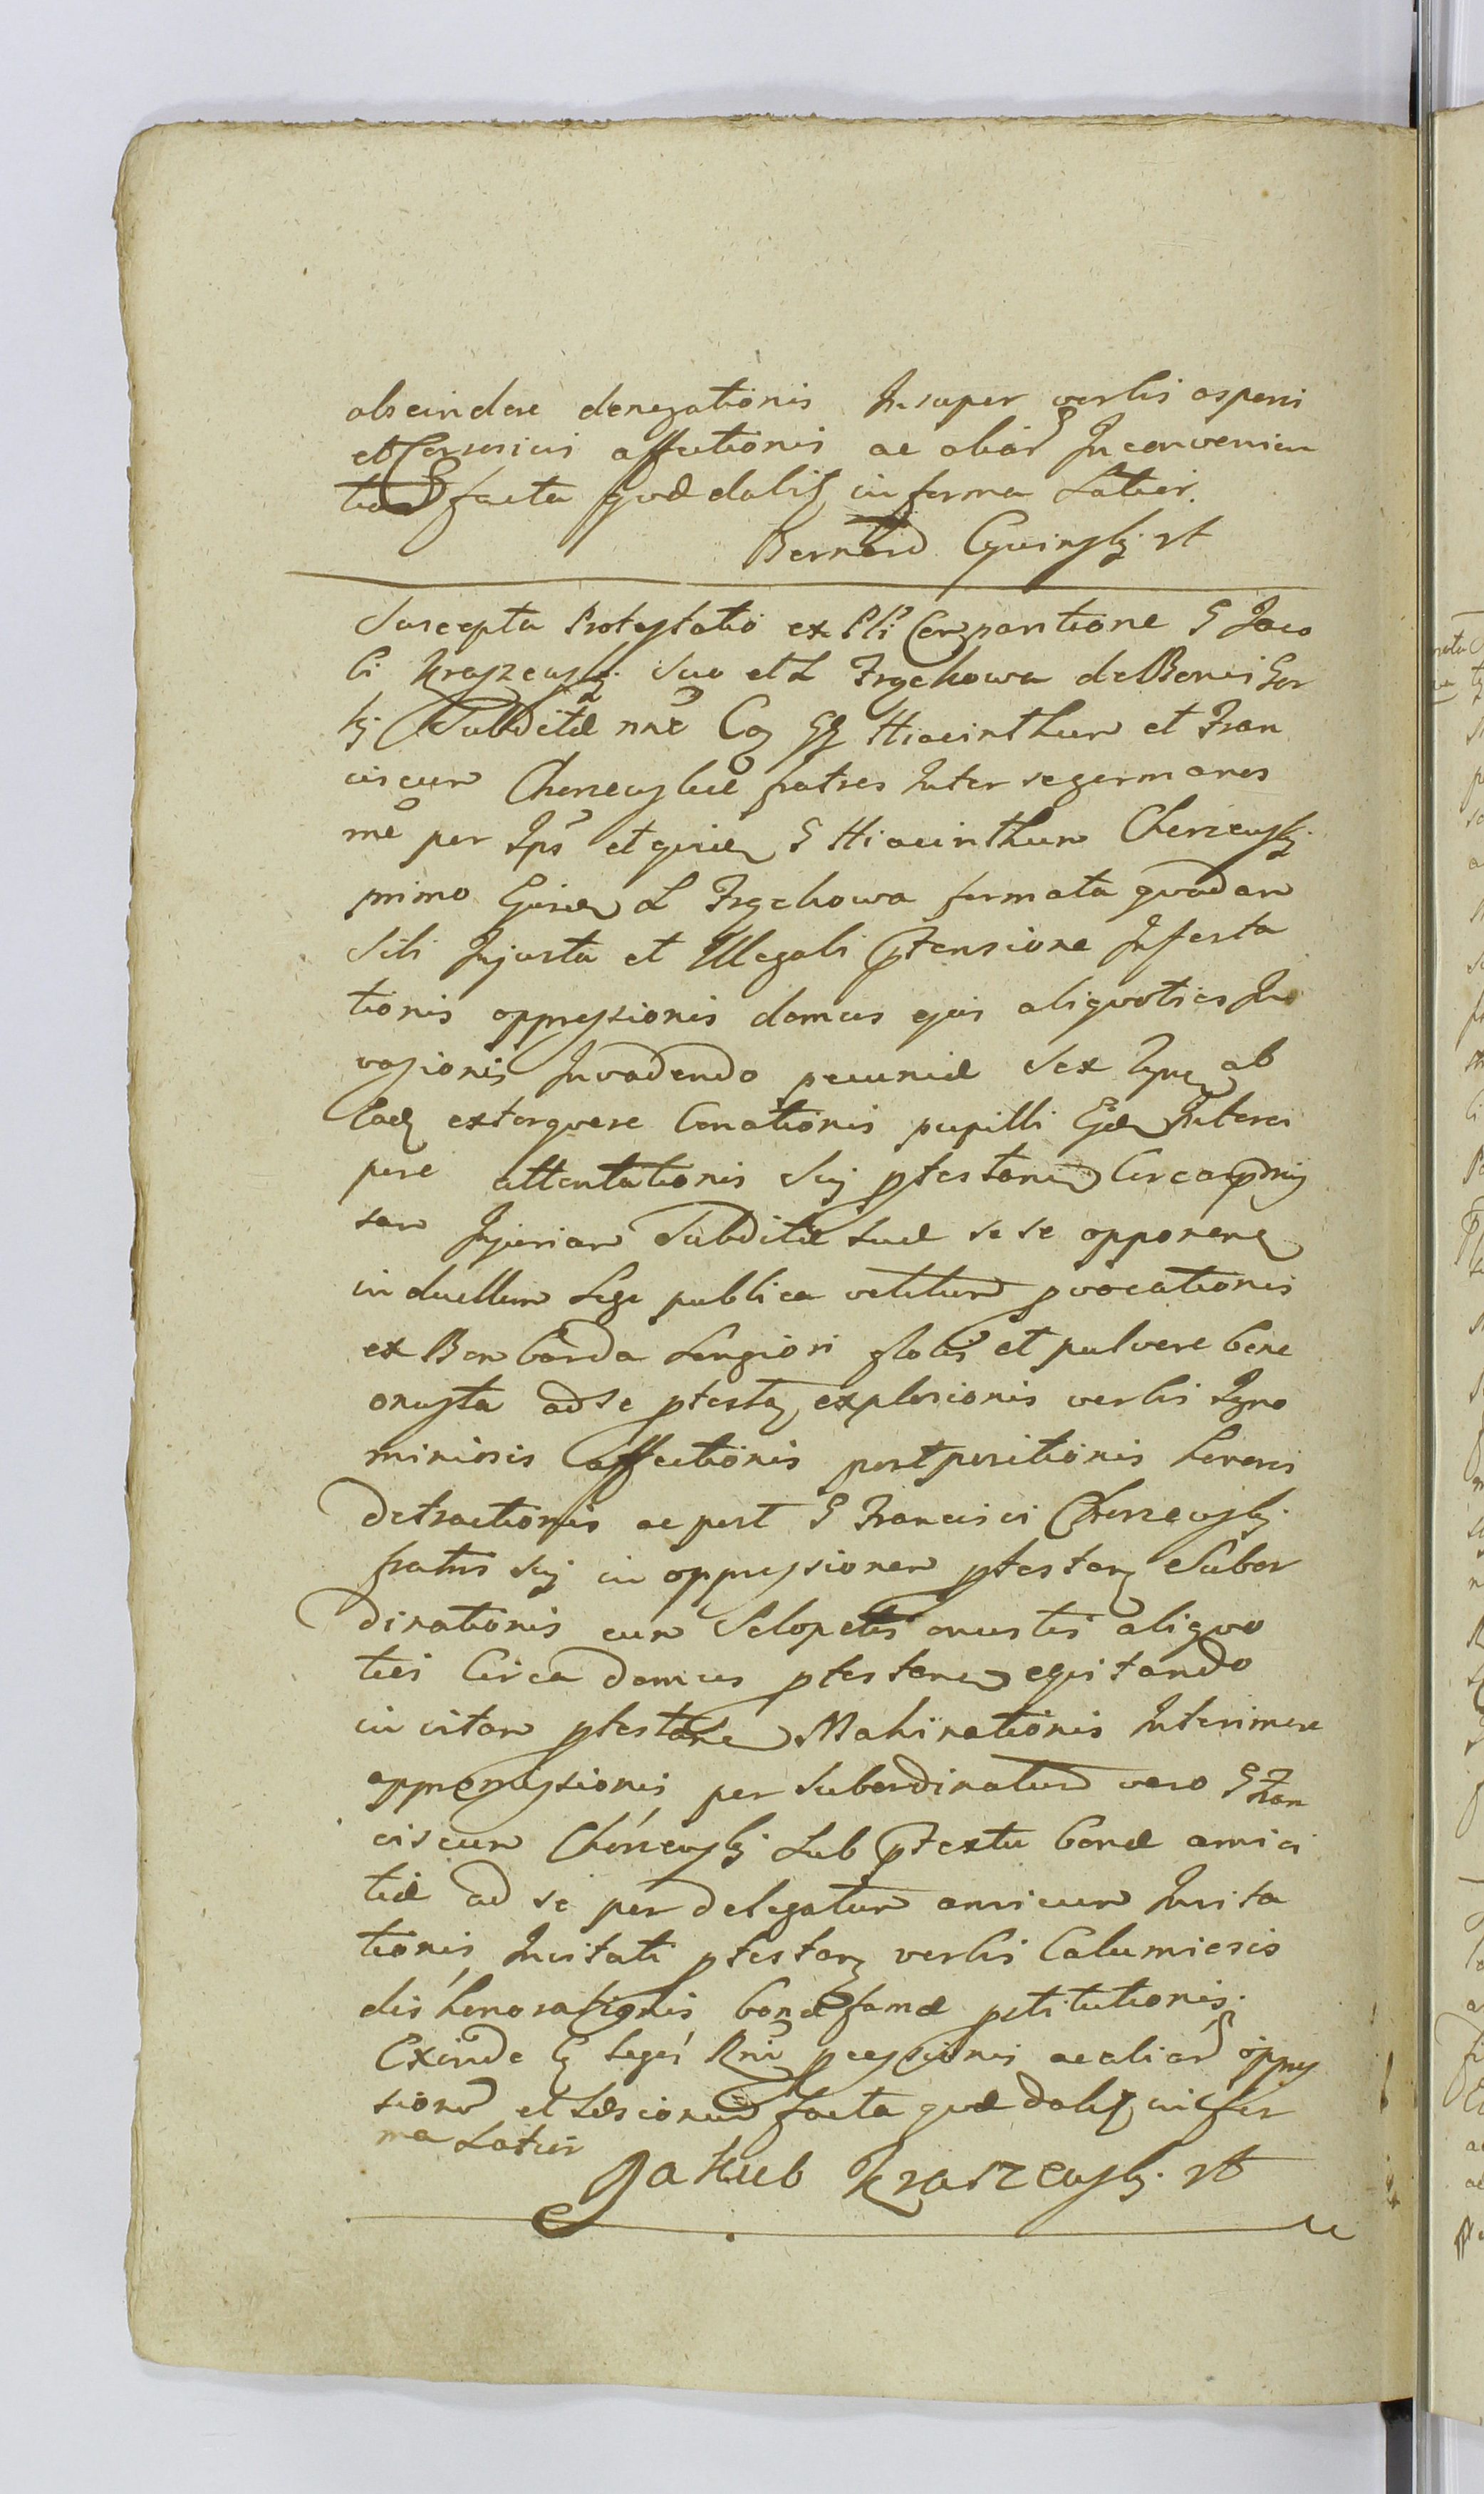 abscindere denegationis Insuper verbis asperis
et Cersoriis affectionis ac aliar Inconvenien
tiar facta quæ dabit in forma Latior.
Bernard Cywinsky
Suscepta Protestatio ex Pli Comparitione G Jaco
bi Kraszewsky suo et L Frychowa de Bonis Gor
ky Subditæ nne Cog GG Hiacinthum et Fran
ciscum Chorzewskie fratres Inter se germanos
me per Ips et quidem G Hiacinthum Chorzewsky
primo Ejusdem L Frychowa formata quadam
Sibi Injusta et Illegali ptensione Infesta
tionis oppressionis domus ejus aliquoties In
vasionis Invadendo pecuniæ Sex Tynf ab
Eadem extorquere Conationis pupilli Ejdem Interci
pere attentationis Suj ptestantis Circa
sam Injuriam Subditæ suæ se se opponen
in duellum Lege publica vetitum pvocationis
ex Bombarda Longiori globis et pulvere bene
onusta ad se ptestan explosionis verbis Igno
miniosis affectionis postpositionis honoris
detractionis ac post G Francisci Chorzewsky
fratris suj in oppressionem ptestan Subor
dinationis cum Sclopetis onustis aliquo
ties Circa domus ptestan eqitando
in vitam ptestane Mahinationis Interimere
per Subordinatum vero G Fran
ciscum Chorzewsky Sub ptextu bonæ amici
tiæ ad se per delegatum amicum Invita
tionis Invitati ptestan verbis Calumiosis
dishonorationis bonæ famæ pstitutionis.
Exinde Leges Rni ac aliar oppres
sionu et Læsionum facta quæ dabit in for
ma Latior
Jakub Kraszewsky